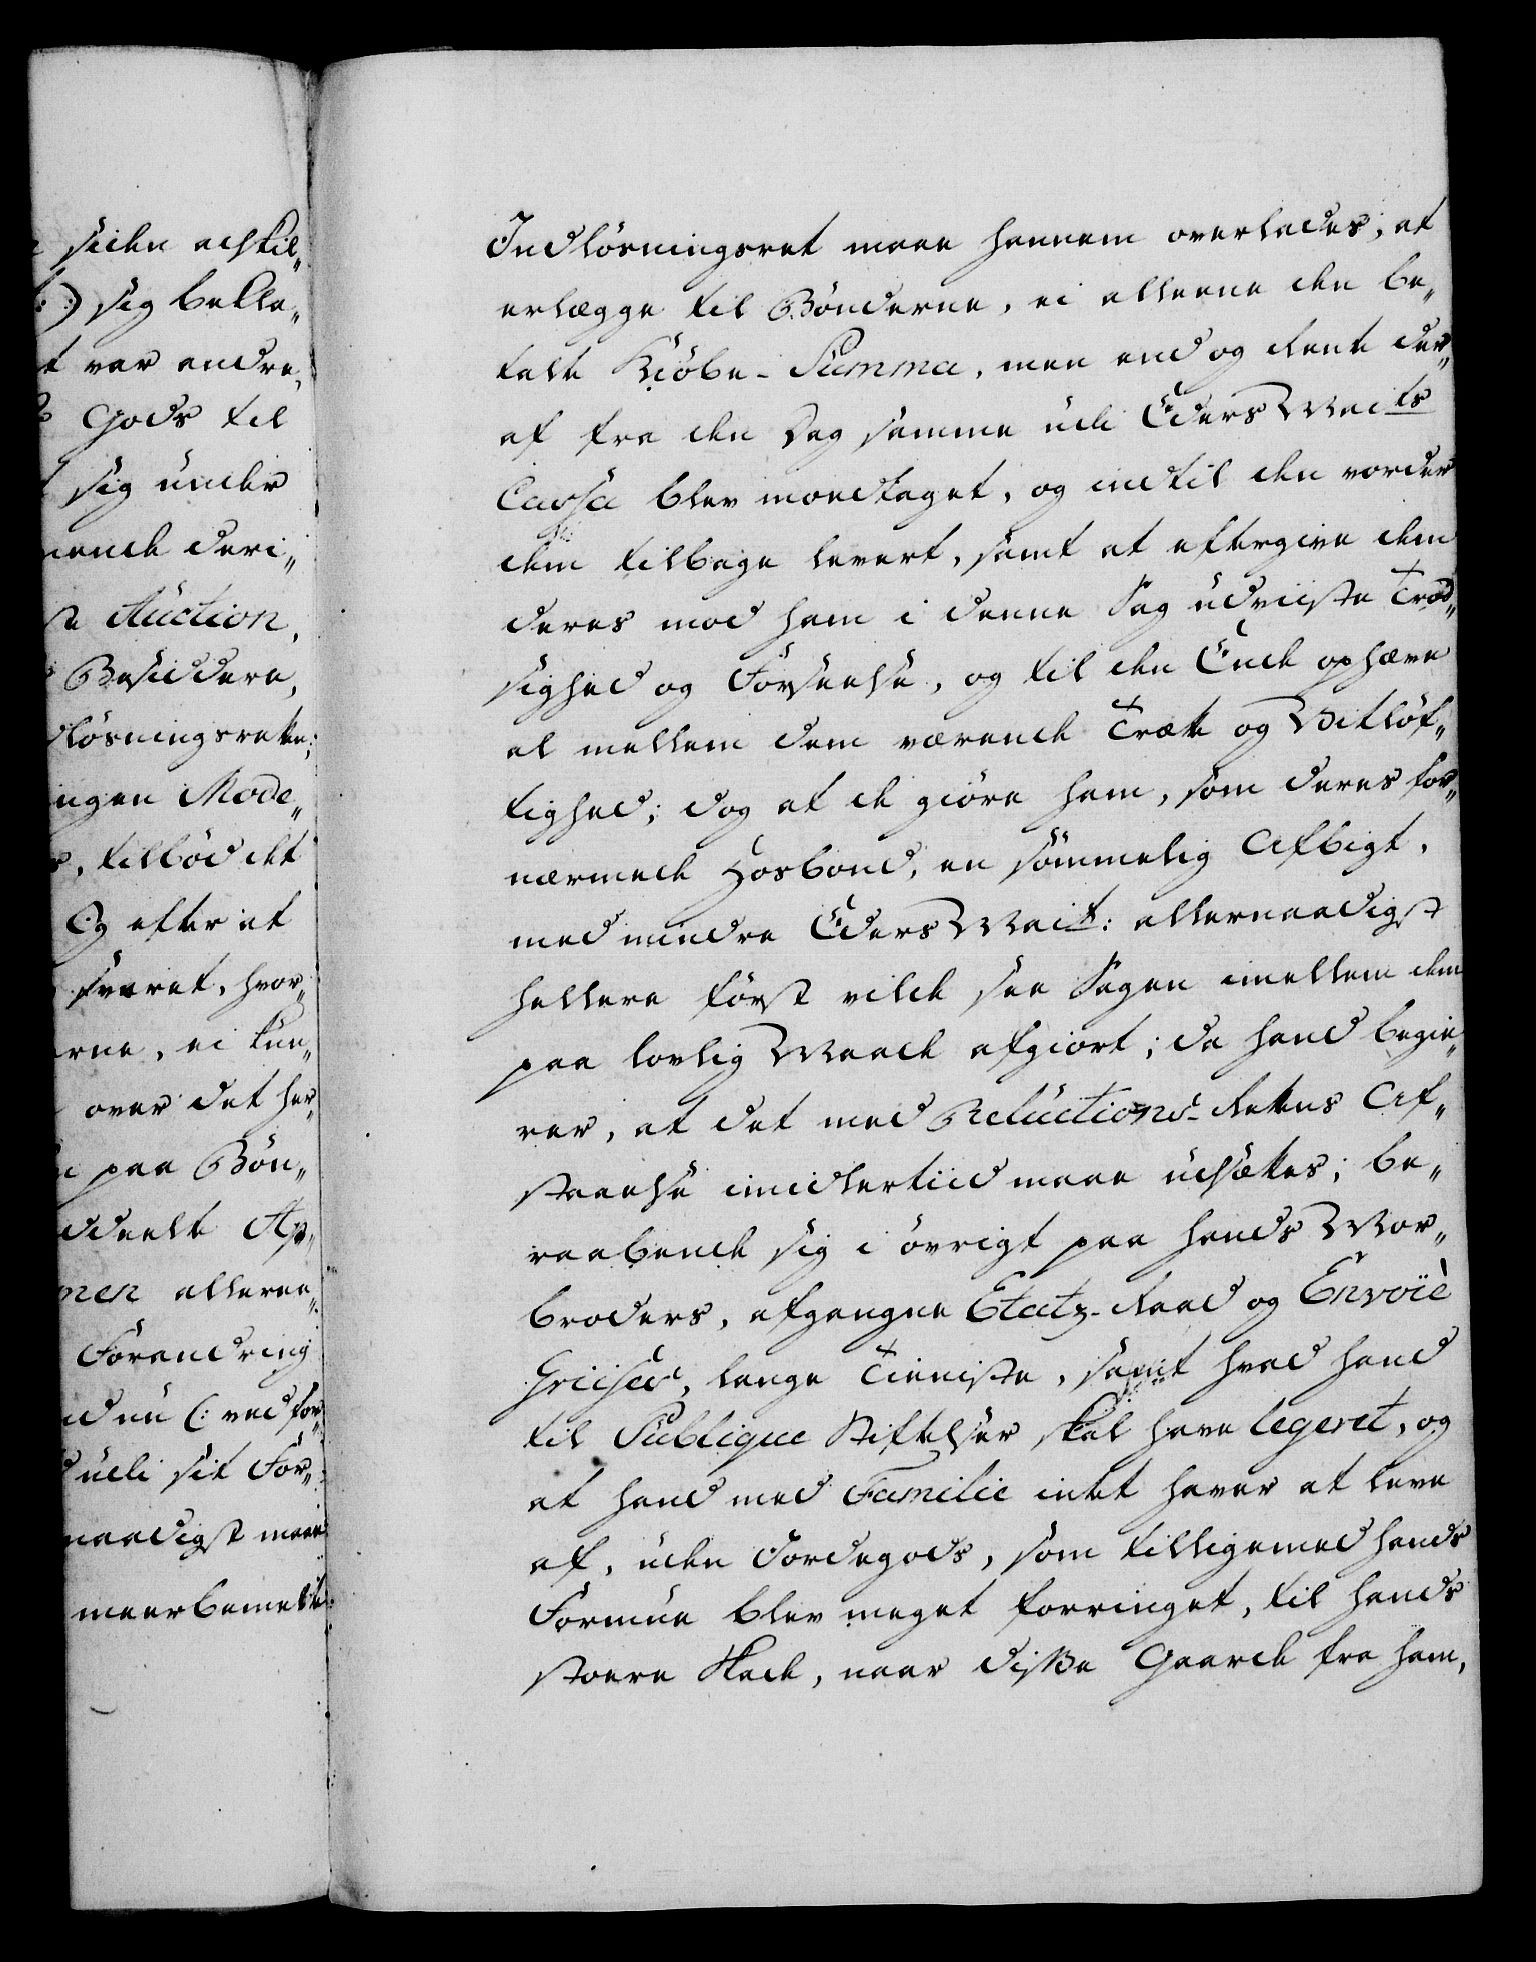 siden adskil„
:) sig bekla„
t var andre,
Gods til
sig under
ende deri„
Auction,
Besiddere,
dløsningsrette;
ingen Mode„
, tilbød det
Og efter at
svaret, hvor„
rne, ei kun„
over det her„
paa Bøn„
ddeelt Ap„
men allerna„
Forandring
nu (: ved for„
udi sit For„
naadigst maae
meerbemelte
Indløsningsret maae hannem overlades, at
erlægge til Bønderne, ei alleene den be„
talte Kiøbe-Summa, men end og Rente der„
af fra den Dag samme udi Eders Maits
Cassa blev modtaget, og indtil den vorder
dem tilbage levert, samt at eftergive dem
deres mod ham i denne Sag udviiste Trod„
sighed og Forseelse, og til den Ende ophæve
al mellem dem værende Trætte og Vitløf„
tighed; dog at de giøre ham, som deres for„
nærmede Hosbond, en sømmelig Afbigt,
med mindre Eders Mait: allernaadigst
hellere først vilde see Sagen imellem dem
paa lovlig Maade afgiort; da hand begie„
rer, at det med Reluctions-Rettens Af„
staaelse imidlertiid maae udsættes; be„
raabende sig i øvrigt paa hands Mor„
broders, afgangne Etatz-Raad og Envoïè
Griises, lange Tieniste, samt hvad hand
til Publique Stiftelser skal have legeret, og
at hand med Familie intet haver at leve
af, uden Jordegods, som tilligemed hands
Formue blev meget forringet, til hands
stoere Skade, naar disse Gaarde fra ham,